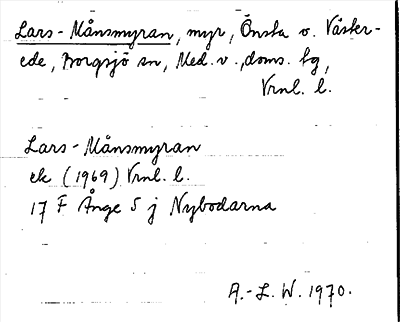 Lars-Månsmyran, myr, Önsta o. Väster-
ede, Borgsjö sn, Med. v., doms. hg,
Vrnl. l.
Lars-Månsmyran
ek (1969) Vrnl. l.
17 F Ånge S j Nybodarna
A.-L. W. 1970.